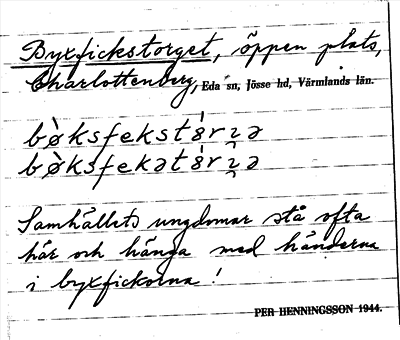 Byxfickstorget, öppen plats,
Charlottenberg, Eda sn, Jösse hd, Värmlands län.
Samhällets ungdomar stå ofta
här och hänga med händerna
i byxfickorna!
PER HENNINGSSON 1944.